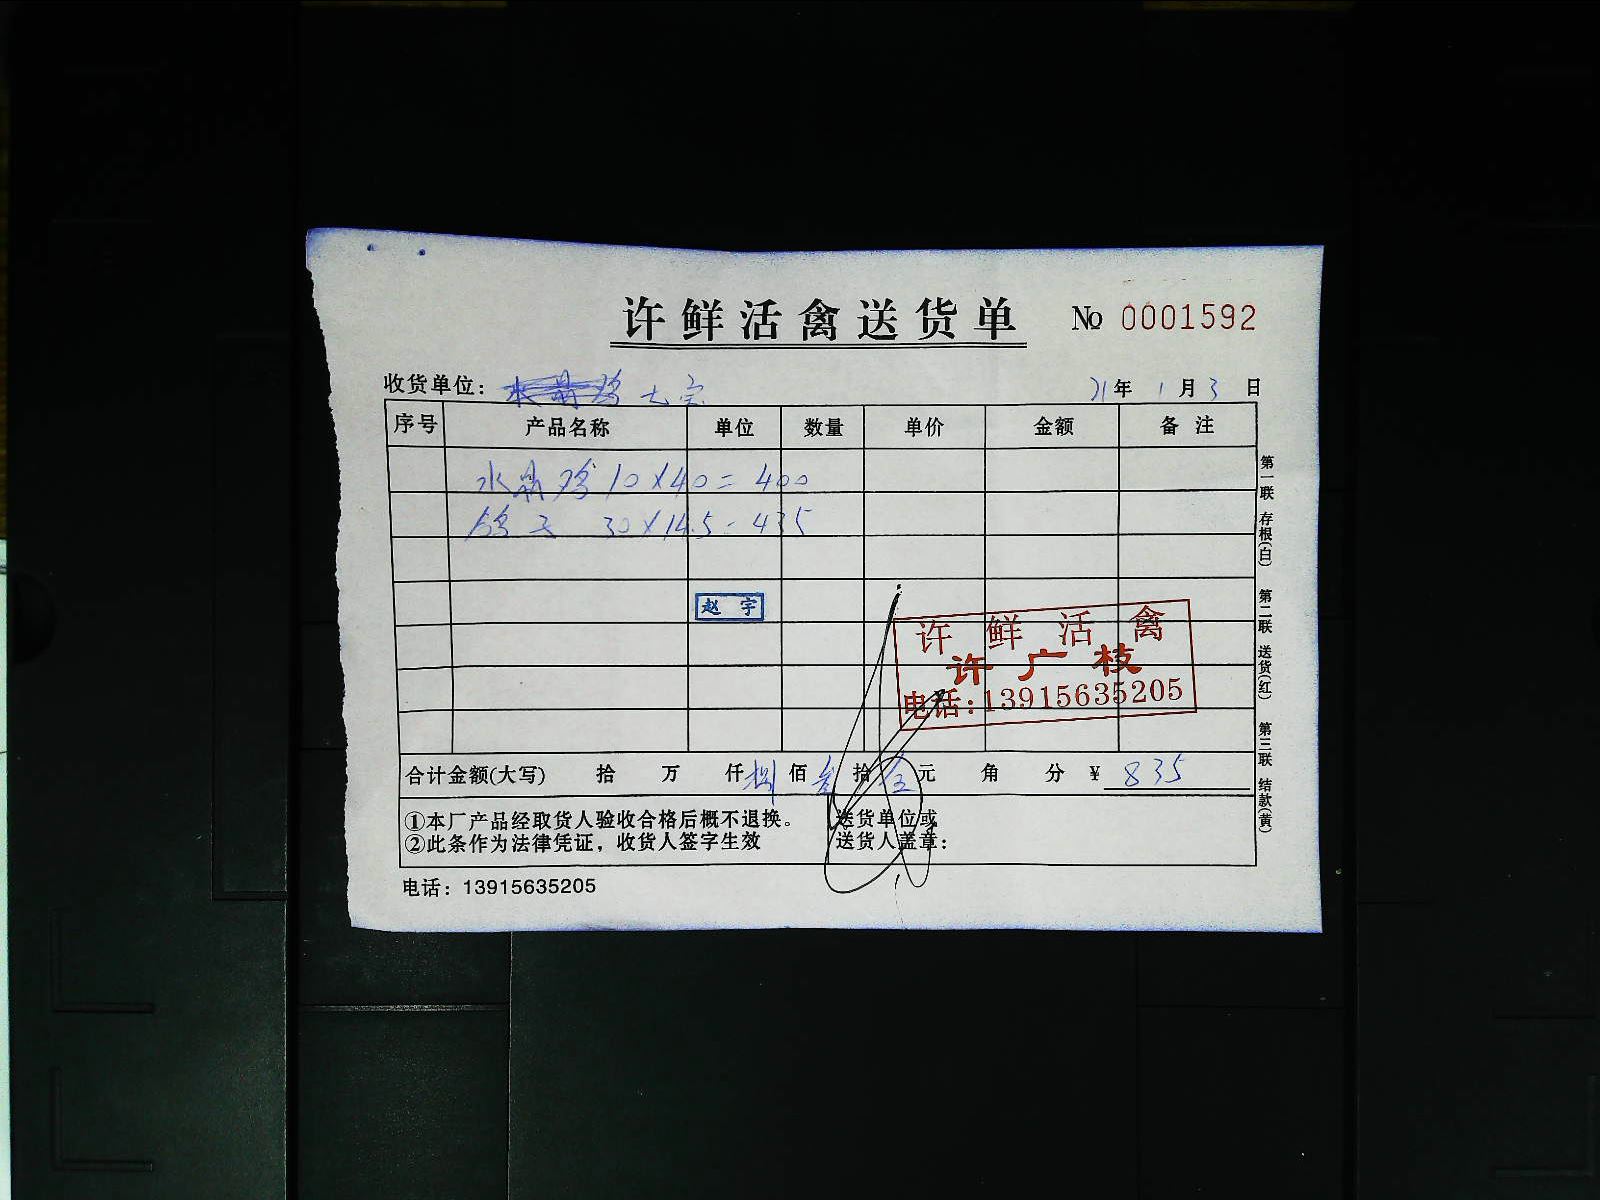 许鲜活禽送货单 № 0001592
收货单位： 21年 1月3日
序号 产品名称 单位 数量 单价 金额 备注
水晶鸡 10×40=400
鸽子 30×14.5=435
赵宇
许鲜活禽
许广枝
电话:13915635205
合计金额(大写) 拾 万 仟捌佰叁拾伍元 角 分 ¥ 835
①本厂产品经取货人验收合格后概不退换。
②此条作为法律凭证，收货人签字生效
送货单位或
送货人盖章：
电话：13915635205
第一联 存根(白) 第二联 送货(红) 第三联 结款(黄)